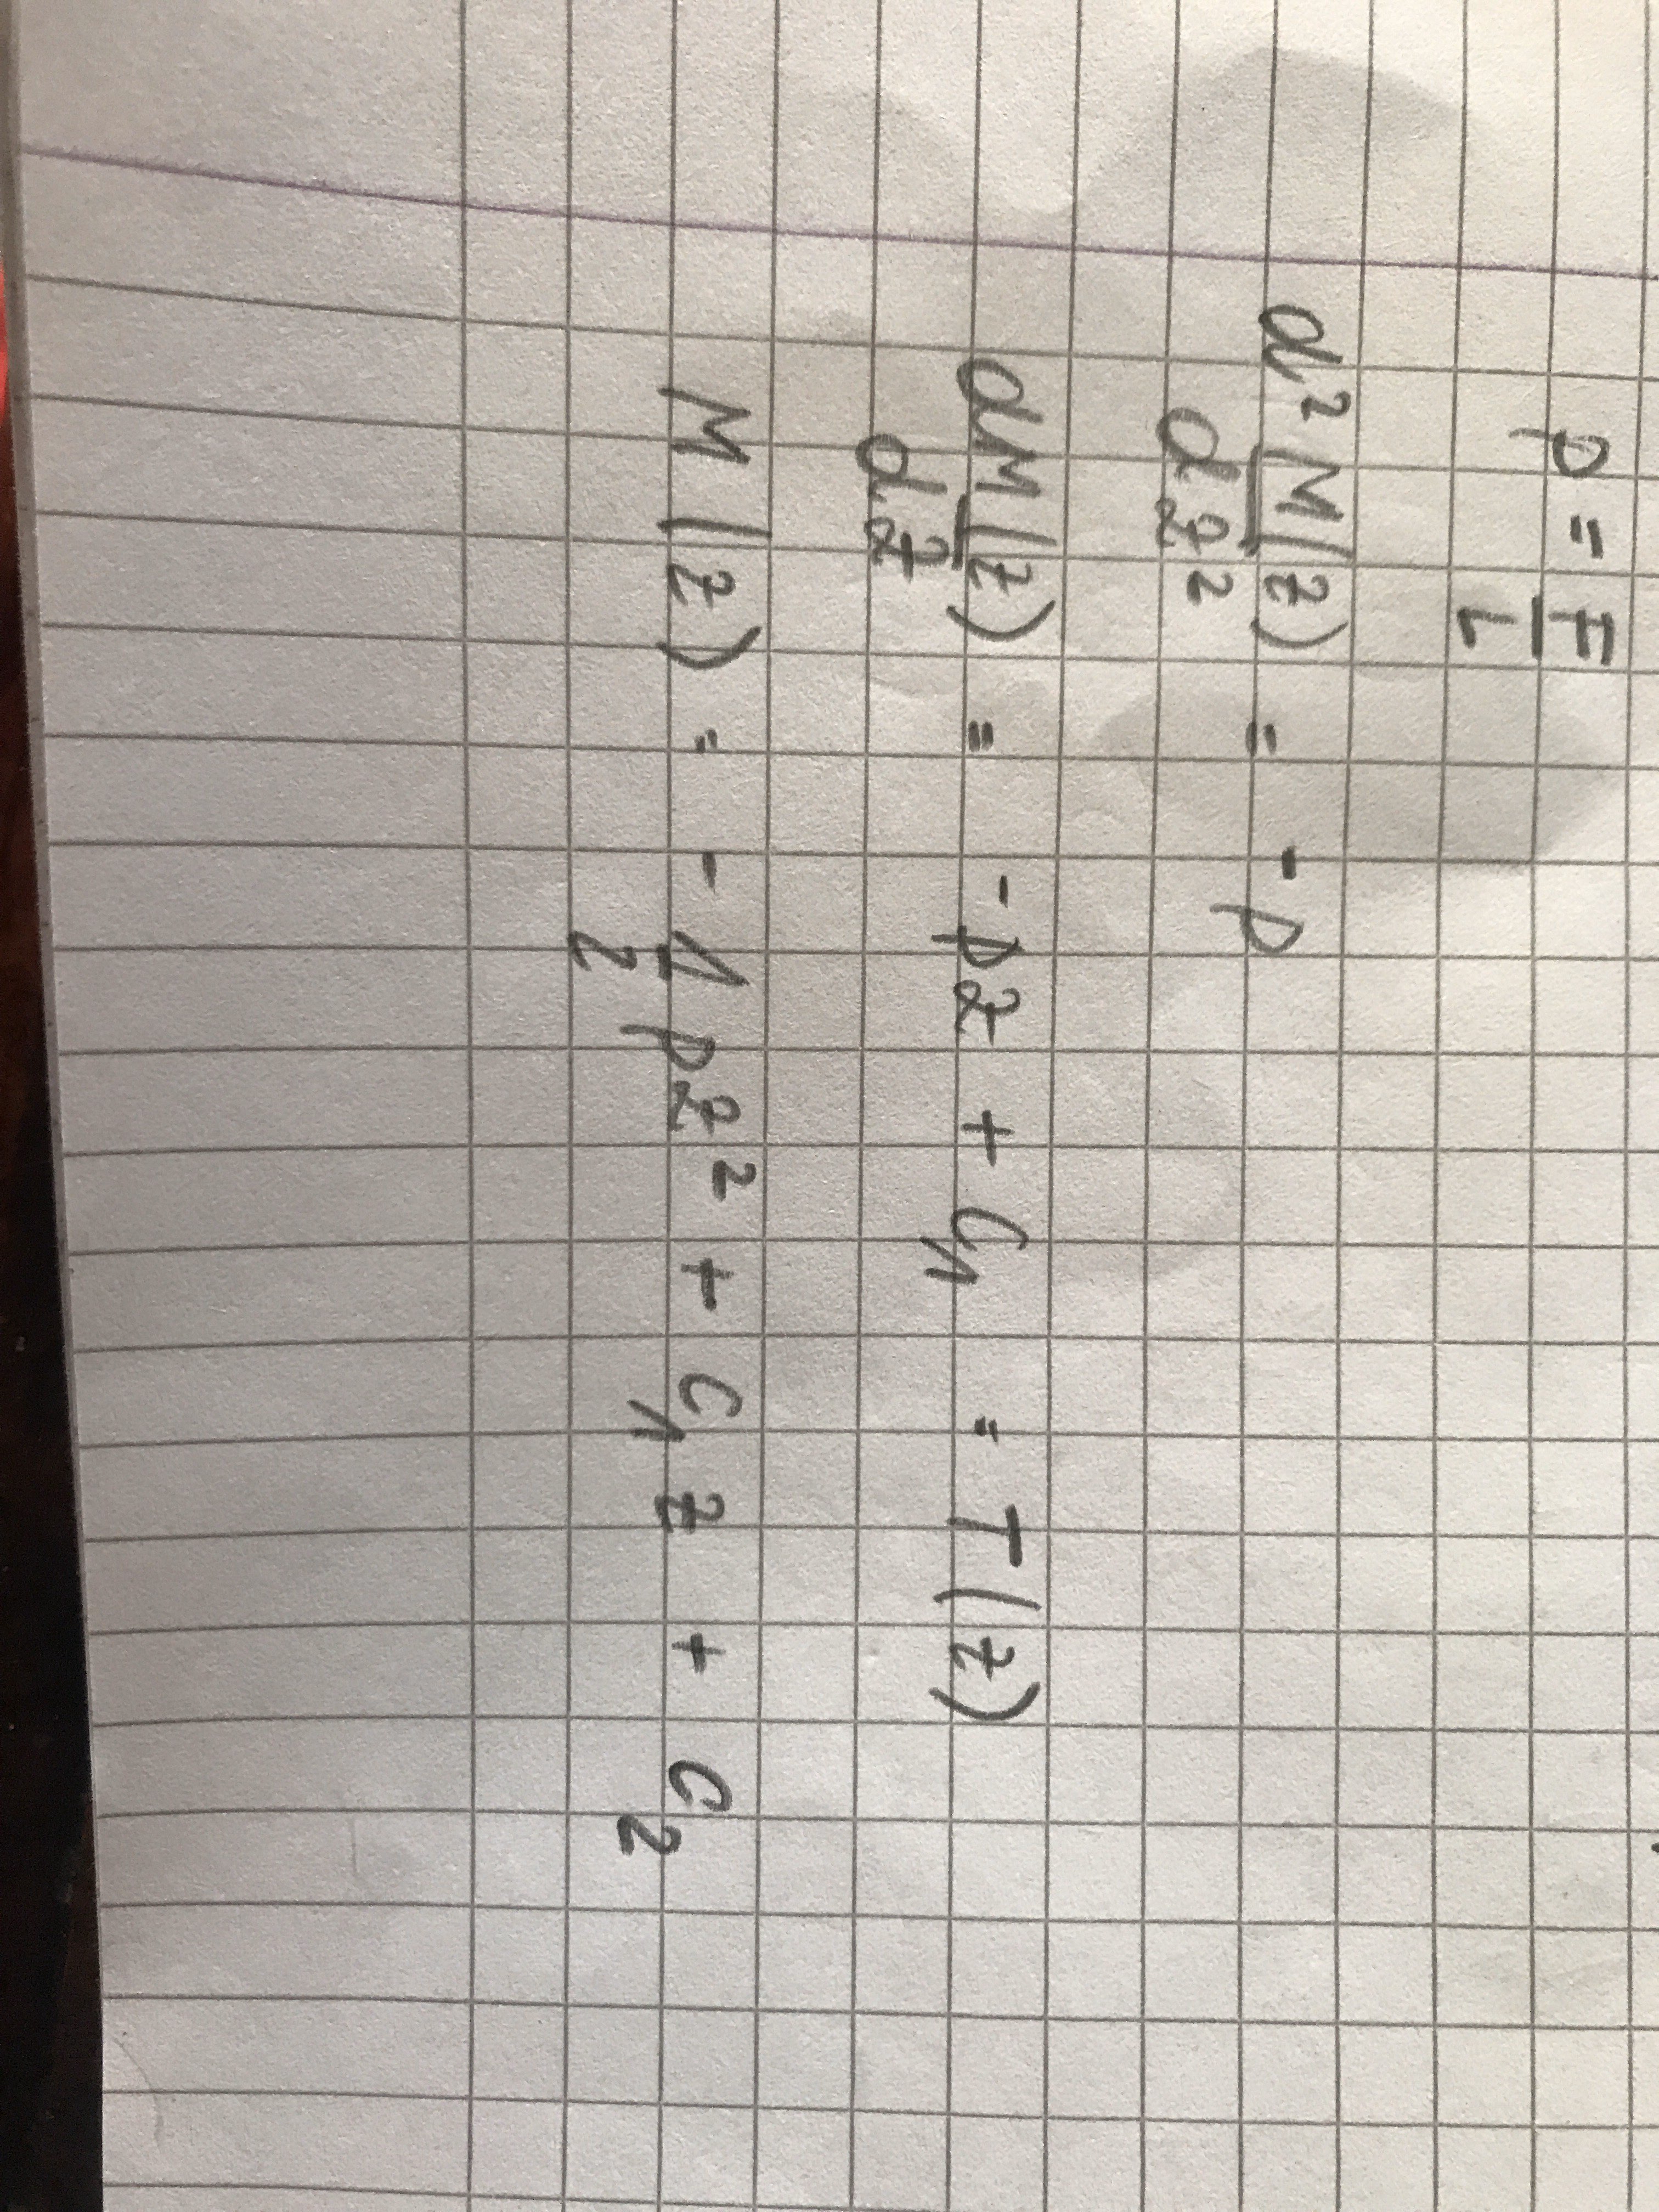 p = F/L
d²M(z)/dz² = -p
dM(z)/dz = -pz + C₁ = T(z)
M(z) = -1/2 pz² + C₁z + C₂